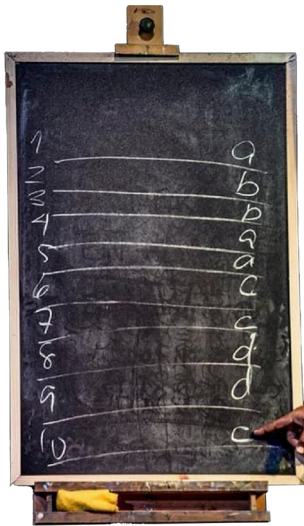 1 a
2 b
3 b
4 a
5 a
6 c
7 c
8 d
9 d
10 c